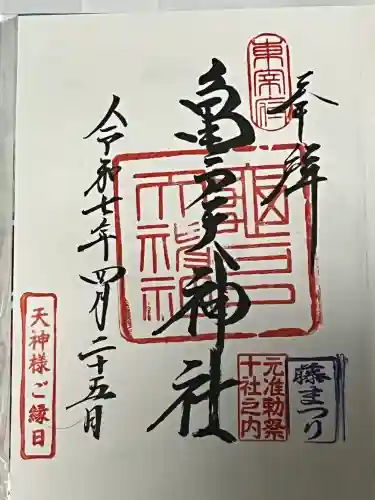 奉拝
東宰府
亀戸天神社
亀戸
天神社
元准勅祭
十社之内
藤まつり
令和七年四月二十五日
天神様ご縁日